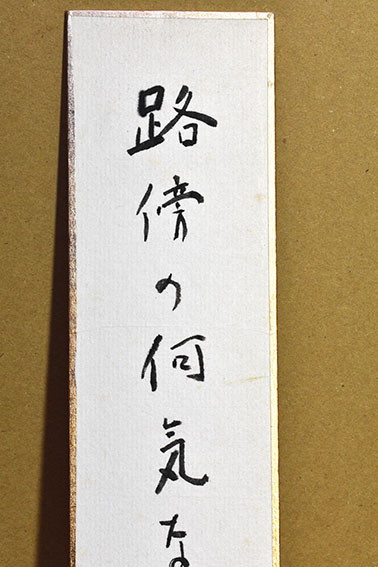 路傍の何気な